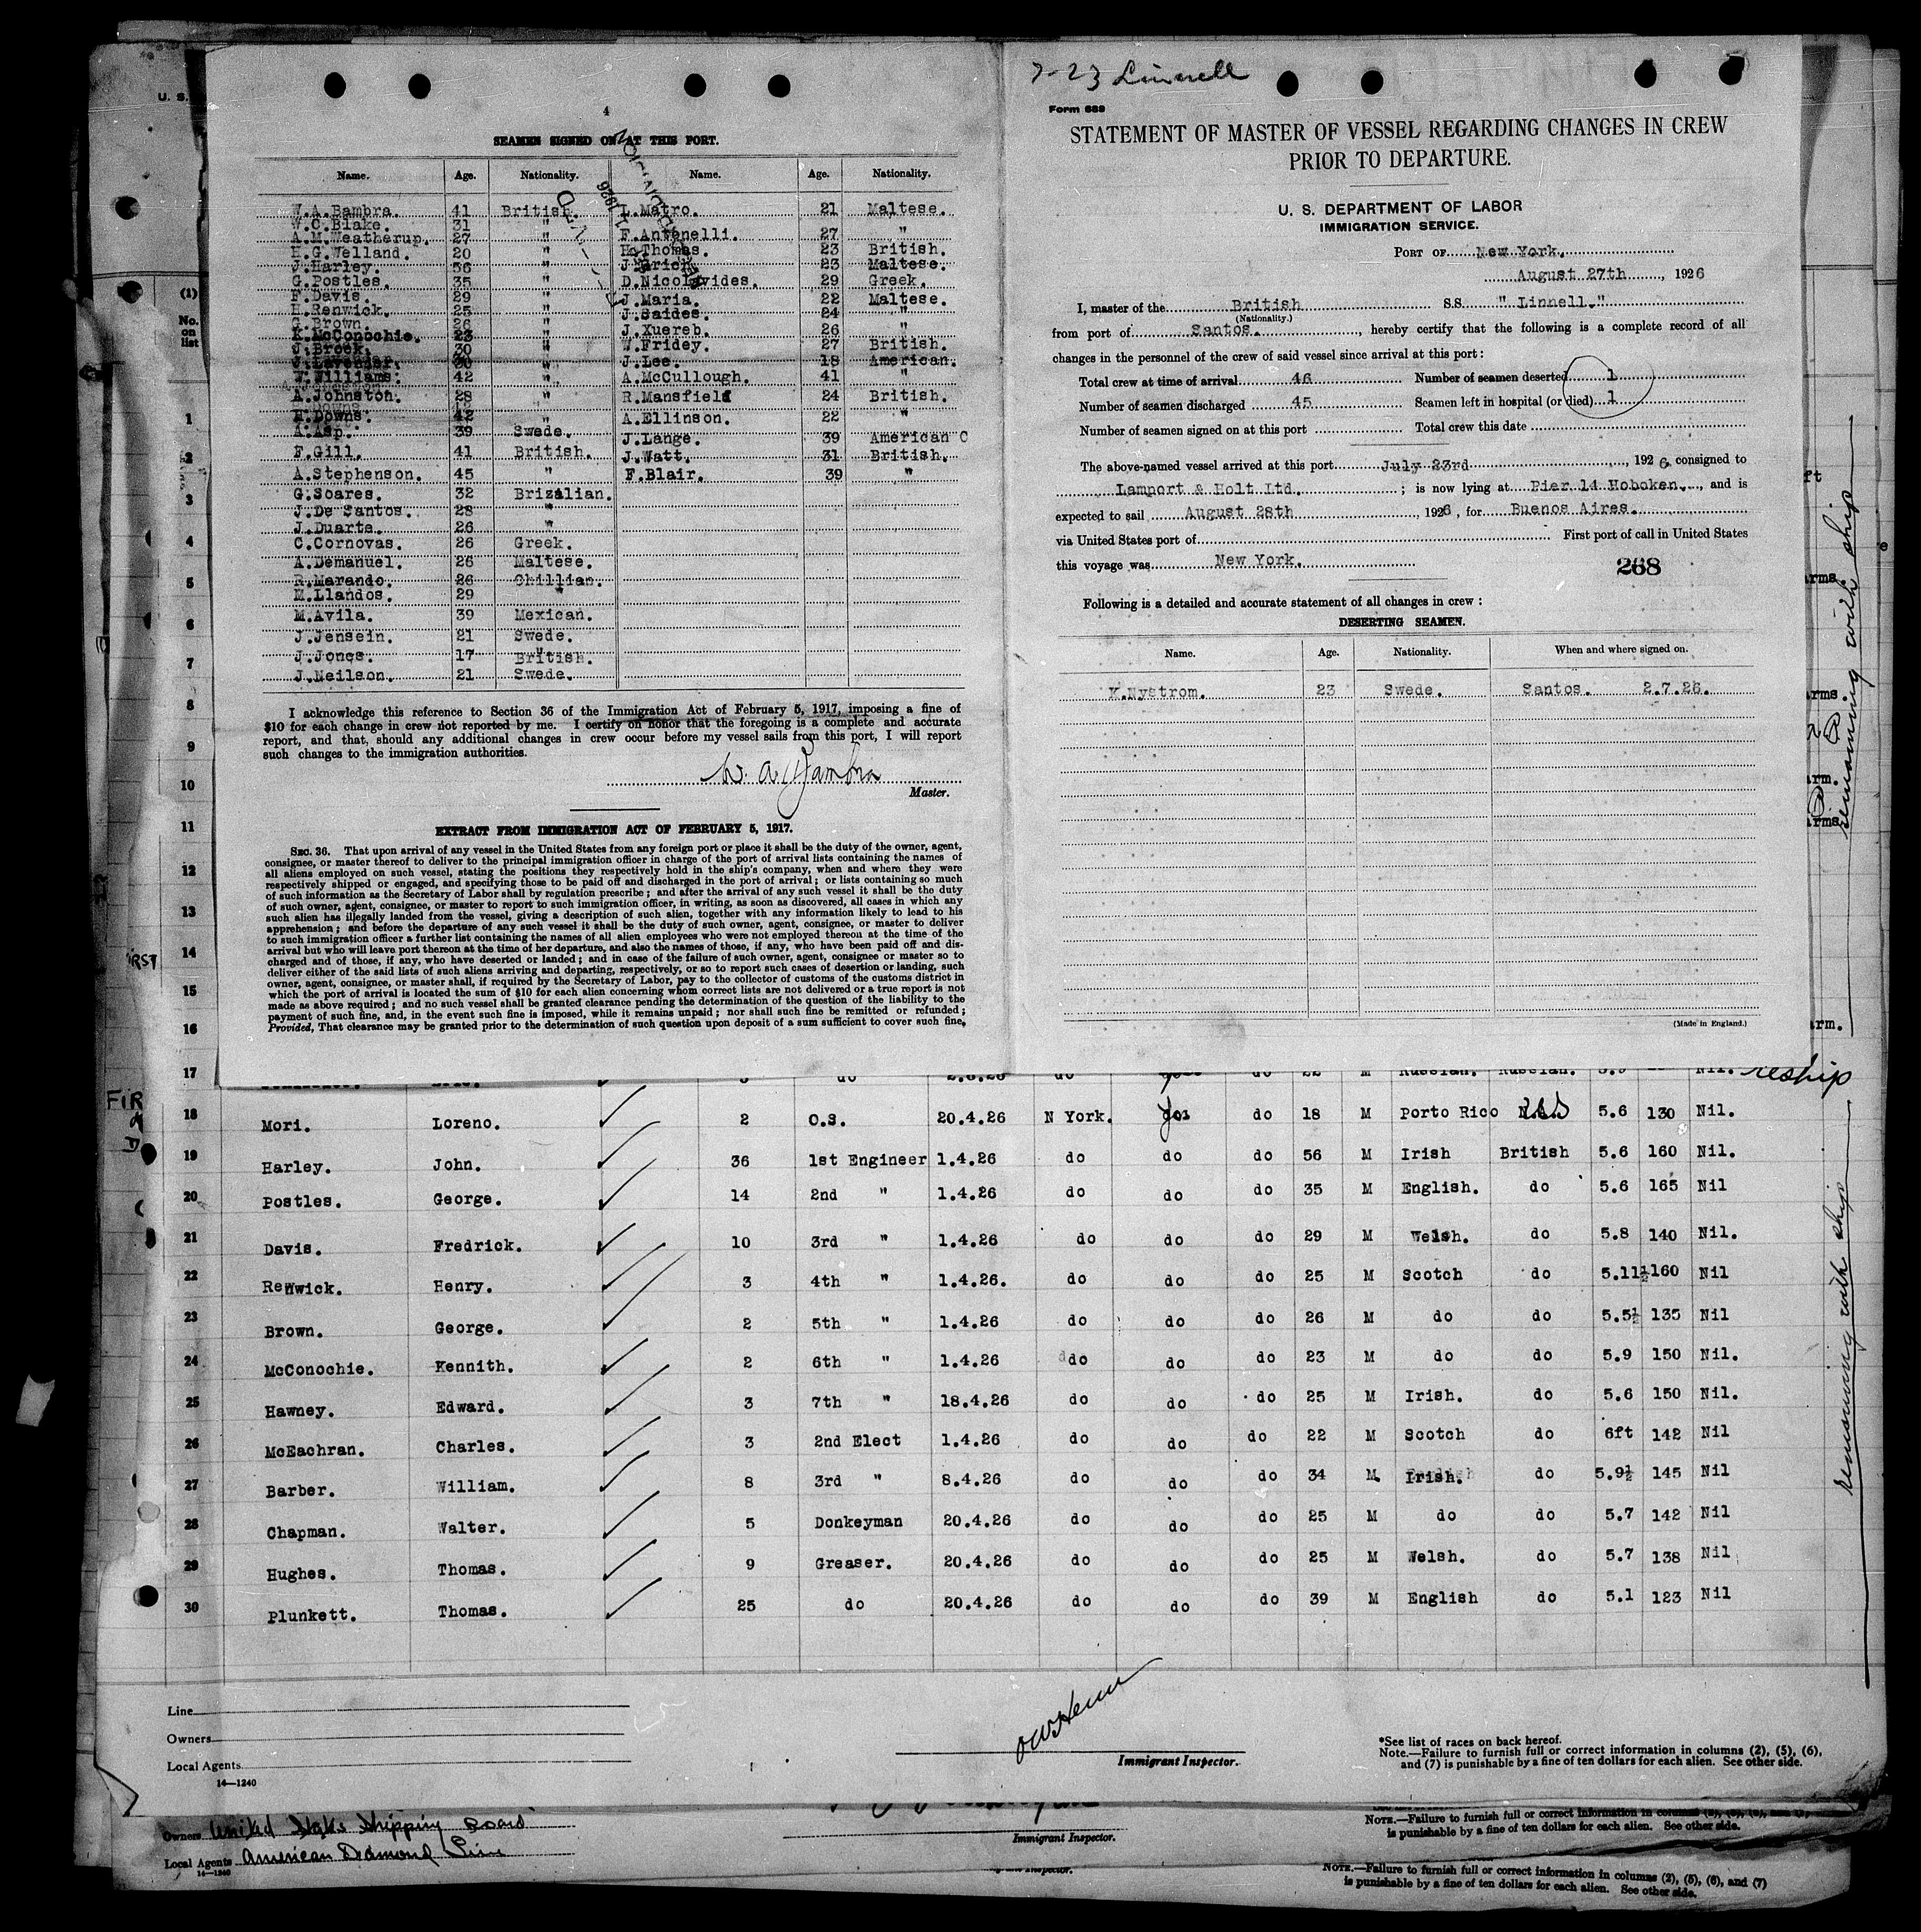 7-23 Linnell
4
SEAMEN SIGNED ON AT THIS PORT.
Name. Age. Nationality. Name. Age. Nationality.
W.A.Bambra. 41 British. L.Matro. 21 Maltese.
W.C.Blake. 31 "
A.M.Weatherup. 27 " F.Antonelli. 27 "
H.G.Welland. 20 " H.Thomas. 23 British.
J.Harley. 56 " 23 Maltese.
G.Postles. 35 " D.Nicolavides. 29 Greek.
F.Davis. 29 " J.Maria. 22 Maltese.
H.Renwick. 25 " J.Saides. 24 "
G.Brown. 26 " J.Xuereb. 26 "
K.McConochie. 23 " W.Fridey. 27 British.
C.Brock. 30 " J.Lee. 18 American.
J.Lavender. 30 "
W.Williams. 42 " A.McCullough. 41 "
A.Johnston. 28 " R.Mansfield 24 British.
H.Downs. 42 " A.Ellinson. 22 "
A.Asp. 39 Swede. J.Lange. 39 American C
F.Gill. 41 British. J.Watt. 31 British.
A.Stephenson. 45 " F.Blair. 39 "
G.Soares. 32 Brizilian.
J.De Santos. 28 "
J.Duarte. 26 "
C.Cornovas. 26 Greek.
A.Demanuel. 26 Maltese.
R.Marando. 26 Chillian.
M.Llandos. 29 "
M.Avila. 39 Mexican.
J.Jensein. 21 Swede.
J.Jones. 17 British.
J.Neilson. 21 Swede.
I acknowledge this reference to Section 36 of the Immigration Act of February 5, 1917, imposing a fine of
$10 for each change in crew not reported by me. I certify on honor that the foregoing is a complete and accurate
report, and that, should any additional changes in crew occur before my vessel sails from this port, I will report
such changes to the immigration authorities.
W. A. Bambra
Master.
EXTRACT FROM IMMIGRATION ACT OF FEBRUARY 5, 1917.
SEC. 36. That upon arrival of any vessel in the United States from any foreign port or place it shall be the duty of the owner, agent,
consignee, or master thereof to deliver to the principal immigration officer in charge of the port of arrival lists containing the names of
all aliens employed on such vessel, stating the positions they respectively hold in the ship's company, when and where they were
respectively shipped or engaged, and specifying those to be paid off and discharged in the port of arrival; or lists containing so much
of such information as the Secretary of Labor shall by regulation prescribe; and after the arrival of any such vessel it shall be the duty
of such owner, agent, consignee, or master to report to such immigration officer, in writing, as soon as discovered, all cases in which any
such alien has illegally landed from the vessel, giving a description of such alien, together with any information likely to lead to his
apprehension; and before the departure of any such vessel it shall be the duty of such owner, agent, consignee, or master to deliver
to such immigration officer a further list containing the names of all alien employees who were not employed thereon at the time of the
arrival but who will leave port thereon at the time of her departure, and also the names of those, if any, who have been paid off and dis-
charged and of those, if any, who have deserted or landed; and in case of the failure of such owner, agent, consignee or master so to
deliver either of the said lists of such aliens arriving and departing, respectively, or so to report such cases of desertion or landing, such
owner, agent, consignee, or master shall, if required by the Secretary of Labor, pay to the collector of customs of the customs district in
which the port of arrival is located the sum of $10 for each alien concerning whom correct lists are not delivered or a true report is not
made as above required; and no such vessel shall be granted clearance pending the determination of the question of the liability to the
payment of such fine, and, in the event such fine is imposed, while it remains unpaid; nor shall such fine be remitted or refunded;
Provided, That clearance may be granted prior to the determination of such question upon deposit of a sum sufficient to cover such fine.
Form 689
STATEMENT OF MASTER OF VESSEL REGARDING CHANGES IN CREW
PRIOR TO DEPARTURE.
U. S. DEPARTMENT OF LABOR
IMMIGRATION SERVICE.
PORT OF New York.
August 27th, 1926
I, master of the British S.S. "Linnell."
(Nationality.)
from port of Santos., hereby certify that the following is a complete record of all
changes in the personnel of the crew of said vessel since arrival at this port:
Total crew at time of arrival 46 Number of seamen deserted 1
Number of seamen discharged 45 Seamen left in hospital (or died) 1
Number of seamen signed on at this port Total crew this date
The above-named vessel arrived at this port July 23rd, 1926, consigned to
Lamport & Holt Ltd.; is now lying at Pier 14 Hoboken., and is
expected to sail August 28th, 1926, for Buenos Aires.
via United States port of First port of call in United States
this voyage was New York.
268
Following is a detailed and accurate statement of all changes in crew:
DESERTING SEAMEN.
Name. Age. Nationality. When and where signed on.
K.Nystrom. 23 Swede. Santos. 2.7.26.
(Made in England.)
U. S.
(1)
No.
on
list
1
2
3
4
5
6
7
8
9
10
11
12
13
14
15
16
17 do 2.6.26 do do 22 M Russian. Russian. 5.9 Nil. reship
18 Mori. Loreno. 2 O.S. 20.4.26 N York. yes do 18 M Porto Rico U.S. 5.6 130 Nil.
19 Harley. John. 36 1st Engineer 1.4.26 do do do 56 M Irish British 5.6 160 Nil.
20 Postles. George. 14 2nd " 1.4.26 do do do 35 M English. do 5.6 165 Nil
21 Davis. Fredrick. 10 3rd " 1.4.26 do do do 29 M Welsh. do 5.8 140 Nil.
22 Renwick. Henry. 3 4th " 1.4.26. do do do 25 M Scotch do 5.11½ 160 Nil
23 Brown. George. 2 5th " 1.4.26 do do do 26 M do do 5.5½ 135 Nil
24 McConochie. Kennith. 2 6th " 1.4.26 do do do 23 M do do 5.9 150 Nil.
25 Hawney. Edward. 3 7th " 18.4.26 do do do 25 M Irish. do 5.6 150 Nil.
26 McEachran. Charles. 3 2nd Elect 1.4.26 do do do 22 M Scotch do 6ft 142 Nil
27 Barber. William. 8 3rd " 8.4.26 do do do 34 M. Irish. do 5.9½ 145 Nil
28 Chapman. Walter. 5 Donkeyman 20.4.26 do do do 25 M do do 5.7 142 Nil
29 Hughes. Thomas. 9 Greaser. 20.4.26 do do do 25 M Welsh. do 5.7 138 Nil
30 Plunkett. Thomas. 25 do 20.4.26 do do do 39 M English do 5.1 123 Nil
remaining with ship
remaining with ship
Line
Owners
Local Agents
14—1240
Immigrant Inspector.
*See list of races on back hereof.
Note.—Failure to furnish full or correct information in columns (2), (5), (6),
and (7) is punishable by a fine of ten dollars for each alien. See other side.
Owners United States Shipping Board
Local Agents American Diamond Line
14—1240
Immigrant Inspector.
NOTE.—Failure to furnish full or correct information in columns
is punishable by a fine of ten dollars for each alien. See other side.
NOTE.—Failure to furnish full or correct information in columns (2), (5), (6), and (7)
is punishable by a fine of ten dollars for each alien. See other side.